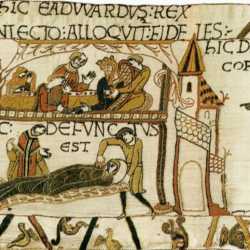 hIC EADVVARDVS: REX
NLECTO: ALLOQVIT: FIDELES:
hIC D
COR
C: DEFVNCTVS
EST